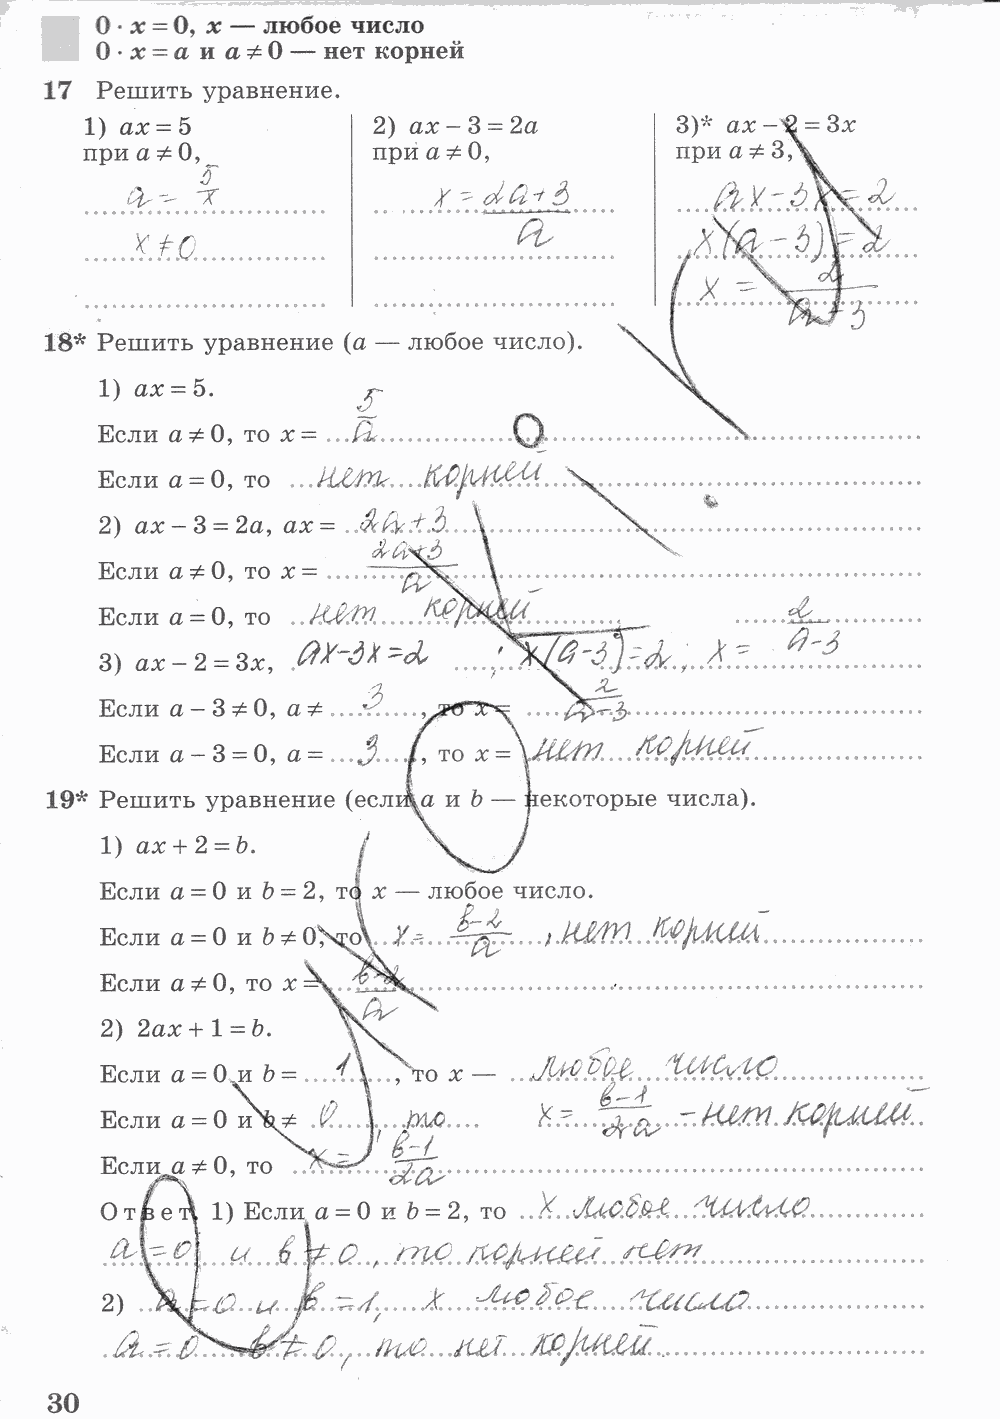 0 · x = 0, x — любое число
0 · x = a и a ≠ 0 — нет корней
17 Решить уравнение.
1) ax = 5
при a ≠ 0,
a = 5/x
x ≠ 0
2) ax − 3 = 2a
при a ≠ 0,
x = 2a+3
a
3)* ax − 2 = 3x
при a ≠ 3,
ax − 3x = 2
x(a − 3) = 2
x = 2
a + 3
18* Решить уравнение (a — любое число).
1) ax = 5.
Если a ≠ 0, то x = 5/a
Если a = 0, то нет корней
2) ax − 3 = 2a, ax = 2a + 3
Если a ≠ 0, то x = 2a+3/a
Если a = 0, то нет корней
3) ax − 2 = 3x, ax−3x=2 ; x(a−3)=2; x = 2/a−3
Если a − 3 ≠ 0, a ≠ 3, то x = 2/a−3
Если a − 3 = 0, a = 3, то x = нет корней
19* Решить уравнение (если a и b — некоторые числа).
1) ax + 2 = b.
Если a = 0 и b = 2, то x — любое число.
Если a = 0 и b ≠ 0, то x = в−2/a, нет корней
Если a ≠ 0, то x = в−2/a
2) 2ax + 1 = b.
Если a = 0 и b = 1, то x — любое число
Если a = 0 и b ≠ 0, то x = в−1/2a − нет корней
Если a ≠ 0, то x = в−1/2a
Ответ. 1) Если a = 0 и b = 2, то x любое число
a = 0 и в ≠ 0, то корней нет
2) a = 0 и в = 1, x любое число
a = 0 в ≠ 0, то нет корней.
30